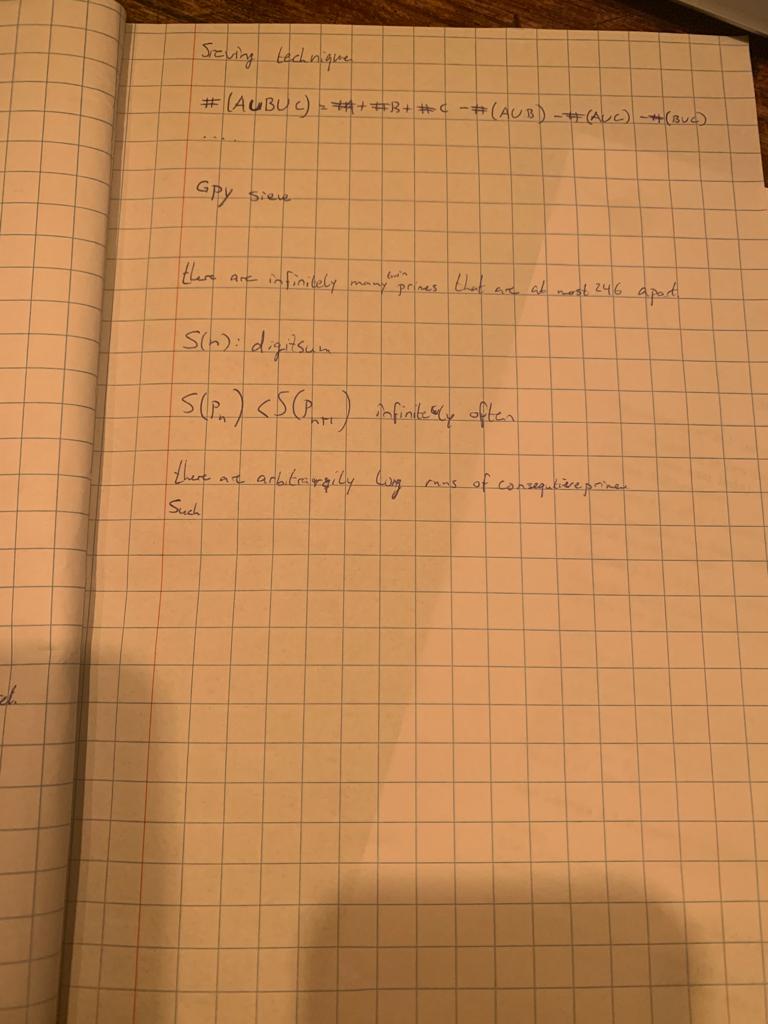 Sieving technique
#(A∪B∪C) = #A + #B + #C - #(A∪B) - #(A∪C) - #(B∪C)
.....
GPY sieve
there are infinitely many twin primes that are at most 246 apart
S(n): digitsum
S(Pₙ) < S(Pₙ₊₁) infinitely often
there are arbitrarily long runs of consequtive primes
Such